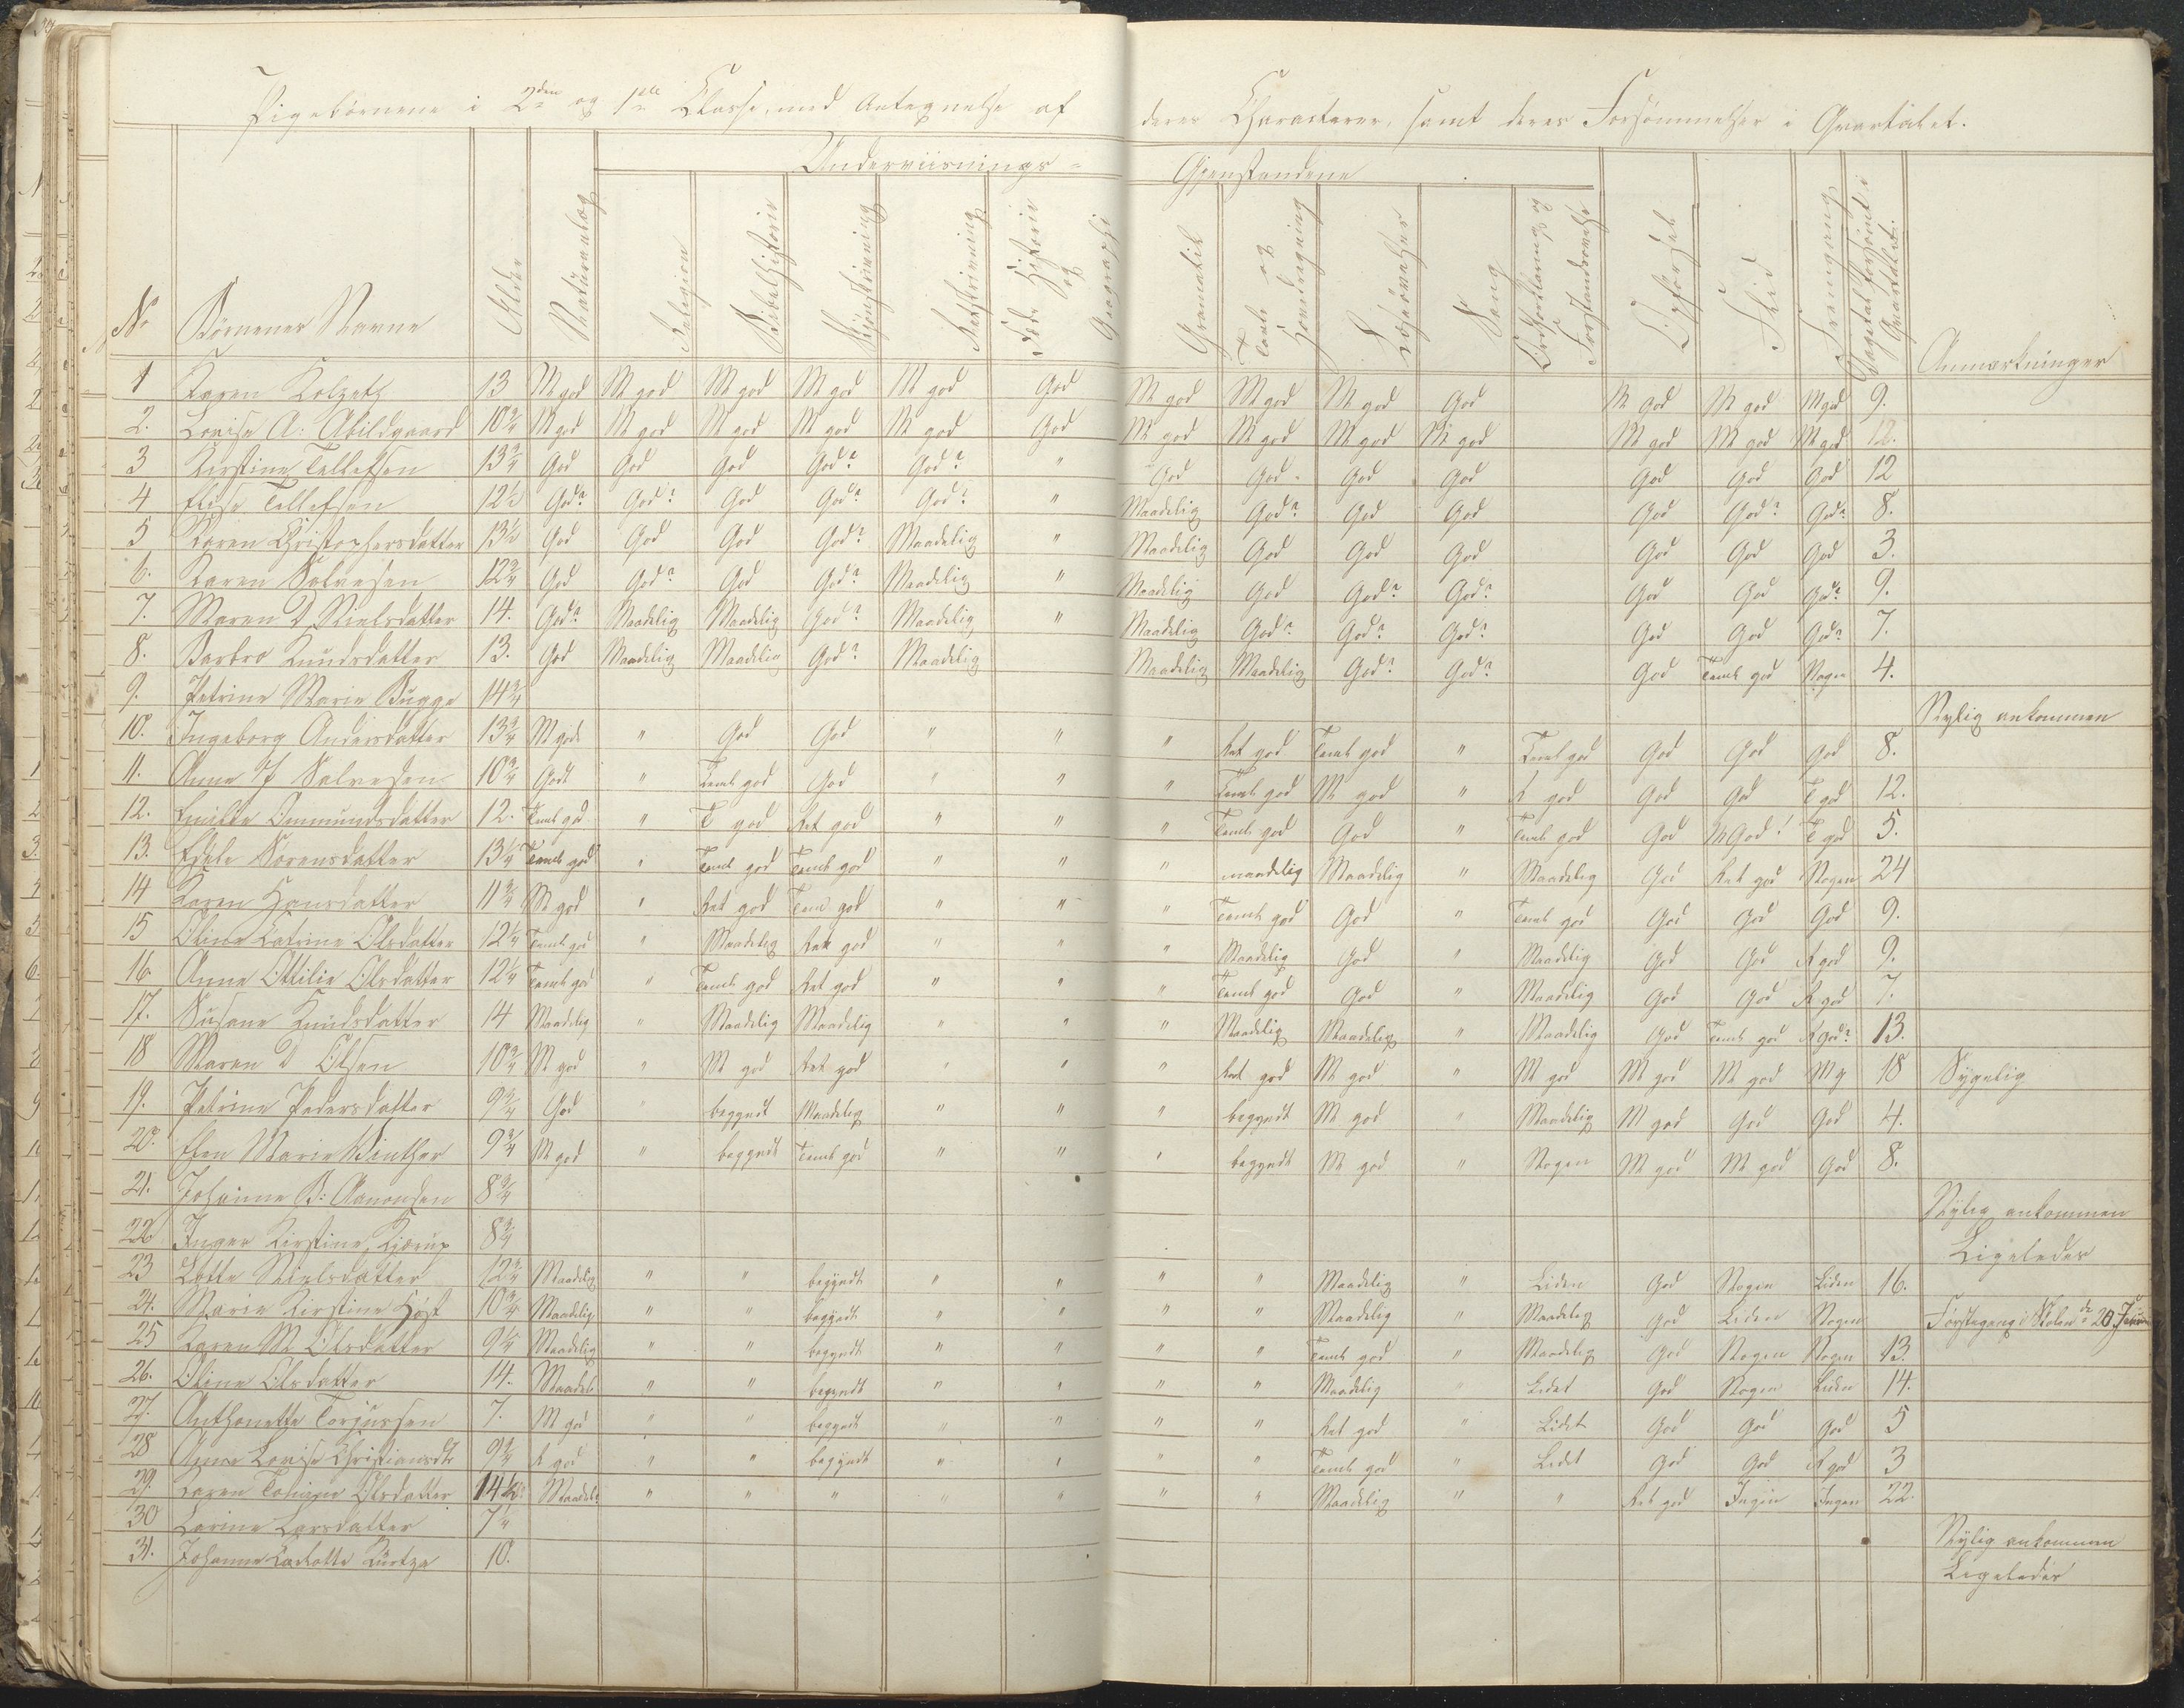 Pigebørnene i 2den og 1ste Classe, med Antegnelse af deres Characterer, samt deres Forsømmelser i Qvartalet.
Underviisnings- Gjenstandene
No Børnenes Navne Alder Religion Bibelhistorie Skjønskrivning Retskrivning Historie og Geographi Gramatik Tavle og Hovedregning Læseøvelser Sang Ordforklaring og Forstandsøvelse Opførsel Flid Fremgang Dagetal forsømt i Qvartalet. Anmærkninger
1 Karen 13 M god M god M god M god M god God M god M god M god God M god M god M god 9.
2. Lovise A: Abildgaard 10 3/4 M god M god M god M god M god God M god M god M god M god M god M god M god 12.
3 Kirstine Tellefsen 13 3/4 God God God God? God? " God God God God God God God 12
4 Elise Tellefsen 12 1/2 God? God? God God? God? " Maadelig God? God God God God? God? 8.
5 Karen Christophersdatter 13 1/2 God God God God? Maadelig " Maadelig God God God God God God 3.
6. Karen Salvesen 12 3/4 God God? God God? Maadelig " Maadelig God God? God? God God God? 9.
7. Maren D Nielsdatter 14. God? Maadelig Maadelig God? Maadelig " Maadelig God? God? God? God God God? 7.
8. Barbro Knudsdatter 13. God Maadelig Maadelig God? Maadelig Maadelig Maadelig God? God? God Teml god Nogen 4.
9. Petrine Marie Bugge 14 3/4 Nylig ankommen
10. Ingeborg Andersdatter 13 3/4 M god " God God " " " Ret god Teml god " Teml god God God God 8.
11. Anne J Salvesen 10 3/4 God " Teml god God " " " Teml god M god " R god God God T god 12.
12. Omundsdatter 12. Teml god " T god Ret god " " " Teml god God " Teml god God M God! T god 5.
13. Edele Sørensdatter 13 1/4 Teml god " Teml god Teml god " " " maadelig Maadelig " Maadelig God Ret god Nogen 24
14 Karen Hansdatter 11 3/4 M god " Ret god Teml god " " " Teml god God " Teml god God God God 9.
15 Oline Catrine Olsdatter 12 1/4 Teml god " Maadelig Ret god " " " Maadelig God " Maadelig God God R god 9.
16. Anne Ottilie Olsdatter 12 1/4 Teml god " Teml god Ret god " " " Teml god God " Maadelig God God R god 7.
17. Susane Knudsdatter 14 Maadelig " Maadelig Maadelig " " " Maadelig Maadelig " Maadelig God Teml god R god? 13.
18 Maren D Olsen 10 3/4 M god " M god Ret god " " " Ret god M god " M god M god M god M g 18 Sygelig
19. Petrine Pedersdatter 9 3/4 God " begyndt Maadelig " " " begyndt M god " Maadelig M god God God 4.
20. Elen Marie Winther 9 3/4 M god " begyndt Teml god " " " begyndt M god " Nogen M god M god God 8.
21. Johanne B: Aanonsen 8 3/4 Nylig ankommen
22 Inger Kirstine Kjærup 8 3/4 Ligeledes
23 Lotte Nielsdatter 12 3/4 Maadelig " " begyndt " " " " Maadelig " Liden God Nogen Liden 16.
24. Marie Kirstine Høst 10 3/4 Maadelig " " begyndt " " " " Maadelig " Maadelig God Liden Nogen Førstegang i Skolen d: 20
25 Karen M Olsdatter 9 1/4 Maadelig " " begyndt " " " " Teml god " Maadelig God Nogen Nogen 13.
26. Oline Olsdatter 14. Maadel. " " begyndt " " " " Maadelig " Lidet God Nogen Liden 14.
27. Anthonette Torjussen 7. M god " " begyndt " " " " Ret god " Lidet God God God 5
28 Anne Lovise Christiansdtr 9 3/4 R god " " begyndt " " " " Teml god " Lidet God God R god 3
29. Karen Tomine Olsdatter 14 1/2 Maadel: " " " " " " " Maadelig " " Ret god Ingen Ingen 22.
30 Larine Larsdatter 7 1/4 Nylig ankommen
31. Johanne Carlotte 10. Ligeledes